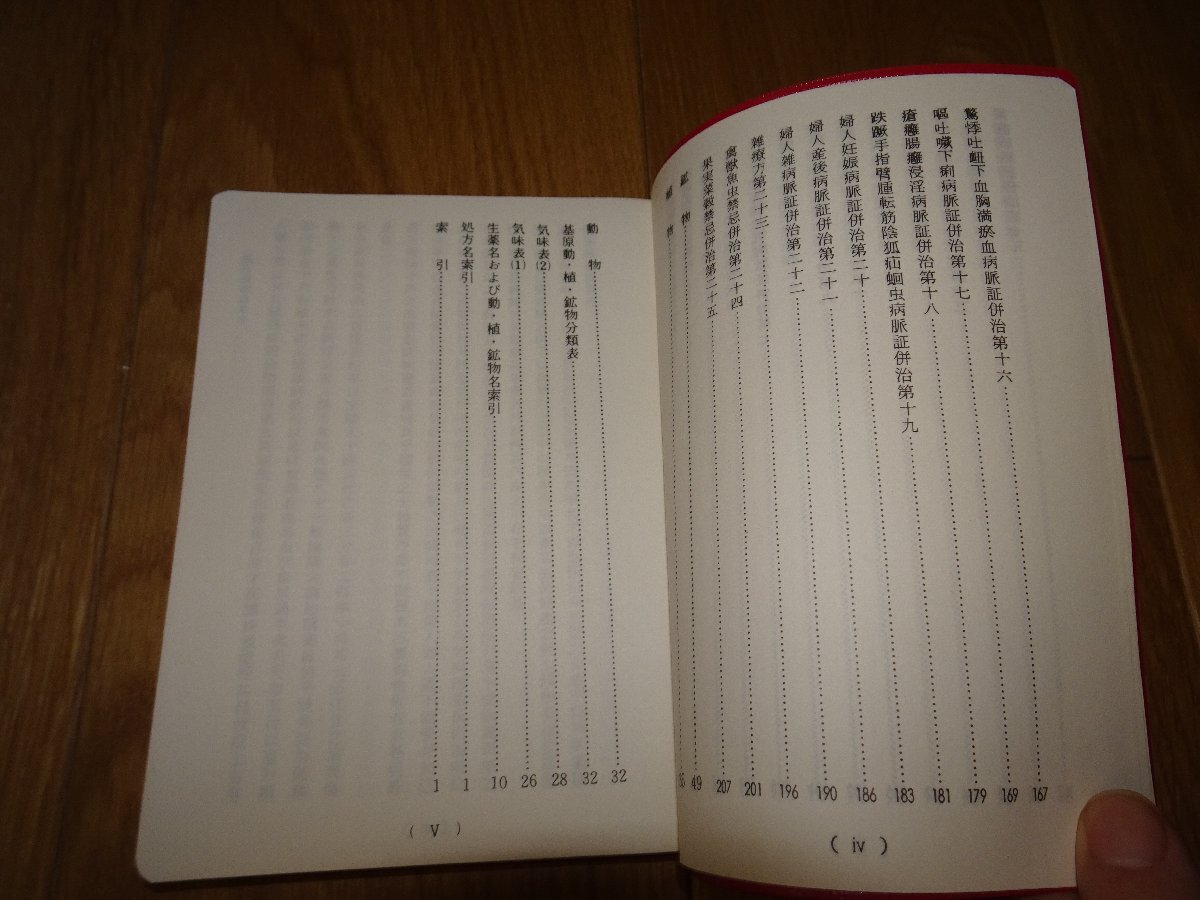 驚悸吐衄下血胸満瘀血病脈証併治第十六……167
嘔吐噦下痢病脈証併治第十七……169
瘡癰腸癰浸淫病脈証併治第十八……179
跌蹶手指臂腫転筋陰狐疝蛔虫病脈証併治第十九……181
婦人妊娠病脈証併治第二十……183
婦人産後病脈証併治第二十一……186
婦人雑病脈証併治第二十二……190
雑療方第二十三……196
禽獣魚虫禁忌併治第二十四……201
果実菜穀禁忌併治第二十五……207
鉱物……49
植物……
( iv )
動物……32
基原動・植・鉱物分類表……32
気味表(2)……28
気味表(1)……26
生薬名および動・植・鉱物名索引……10
処方名索引……1
索引……1
( V )